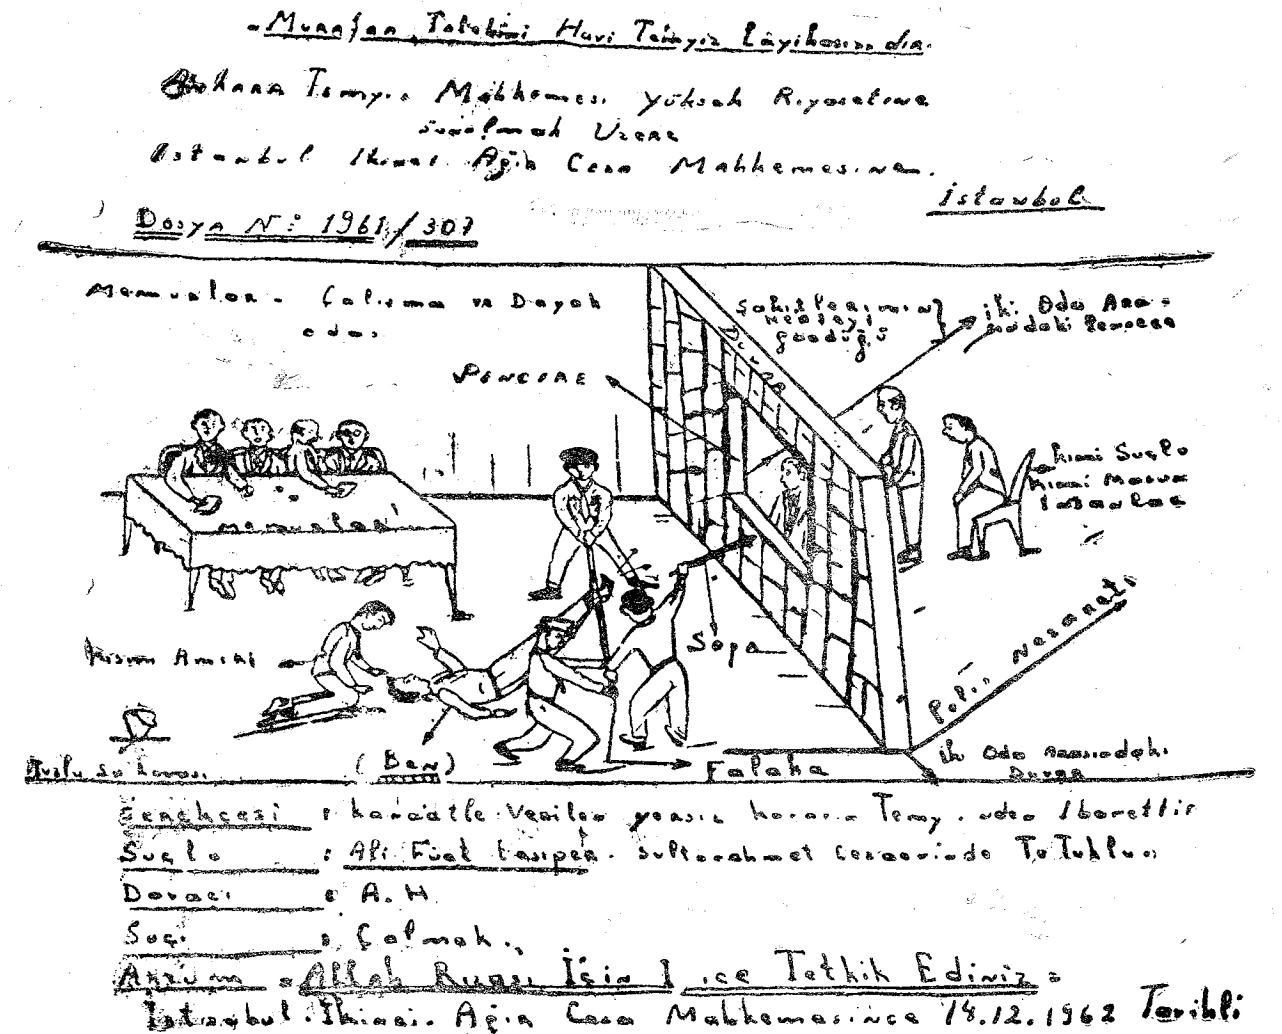 Murafaa Talebini Havi Temyiz Lâyihasıdır.
Ankara Temyiz Mahkemesi Yüksek Riyasetine
Sunulmak Üzere
İstanbul İkinci Ağır Ceza Mahkemesine.
İstanbul
Dosya N: 1961/307
Memurların Çalışma ve Dayak
odası
Şahitlerimin
gördüğü
iki Oda Ara-
sındaki Pencere
DUVAR
PENCERE
kimi Suçlu
kimi Masum
İnsanlar
memurlar
Kısım Amiri
Sopa
Polis Nezareti
(Ben)
Falaka
iki Oda Arasındaki
Duvar
Tuzlu su kovası
Gerekçesi :
Temyizden İbarettir
Suçlu : Ali Fuat Sultanahmet Cezaevinde Tutuklu
Davacı : A. H.
Suçu : Çalmak.
Arzum = Allah Rızası İçin İnce Tetkik Ediniz =
İstanbul İkinci Ağır Ceza Mahkemesince 14.12.1962 Tarihli